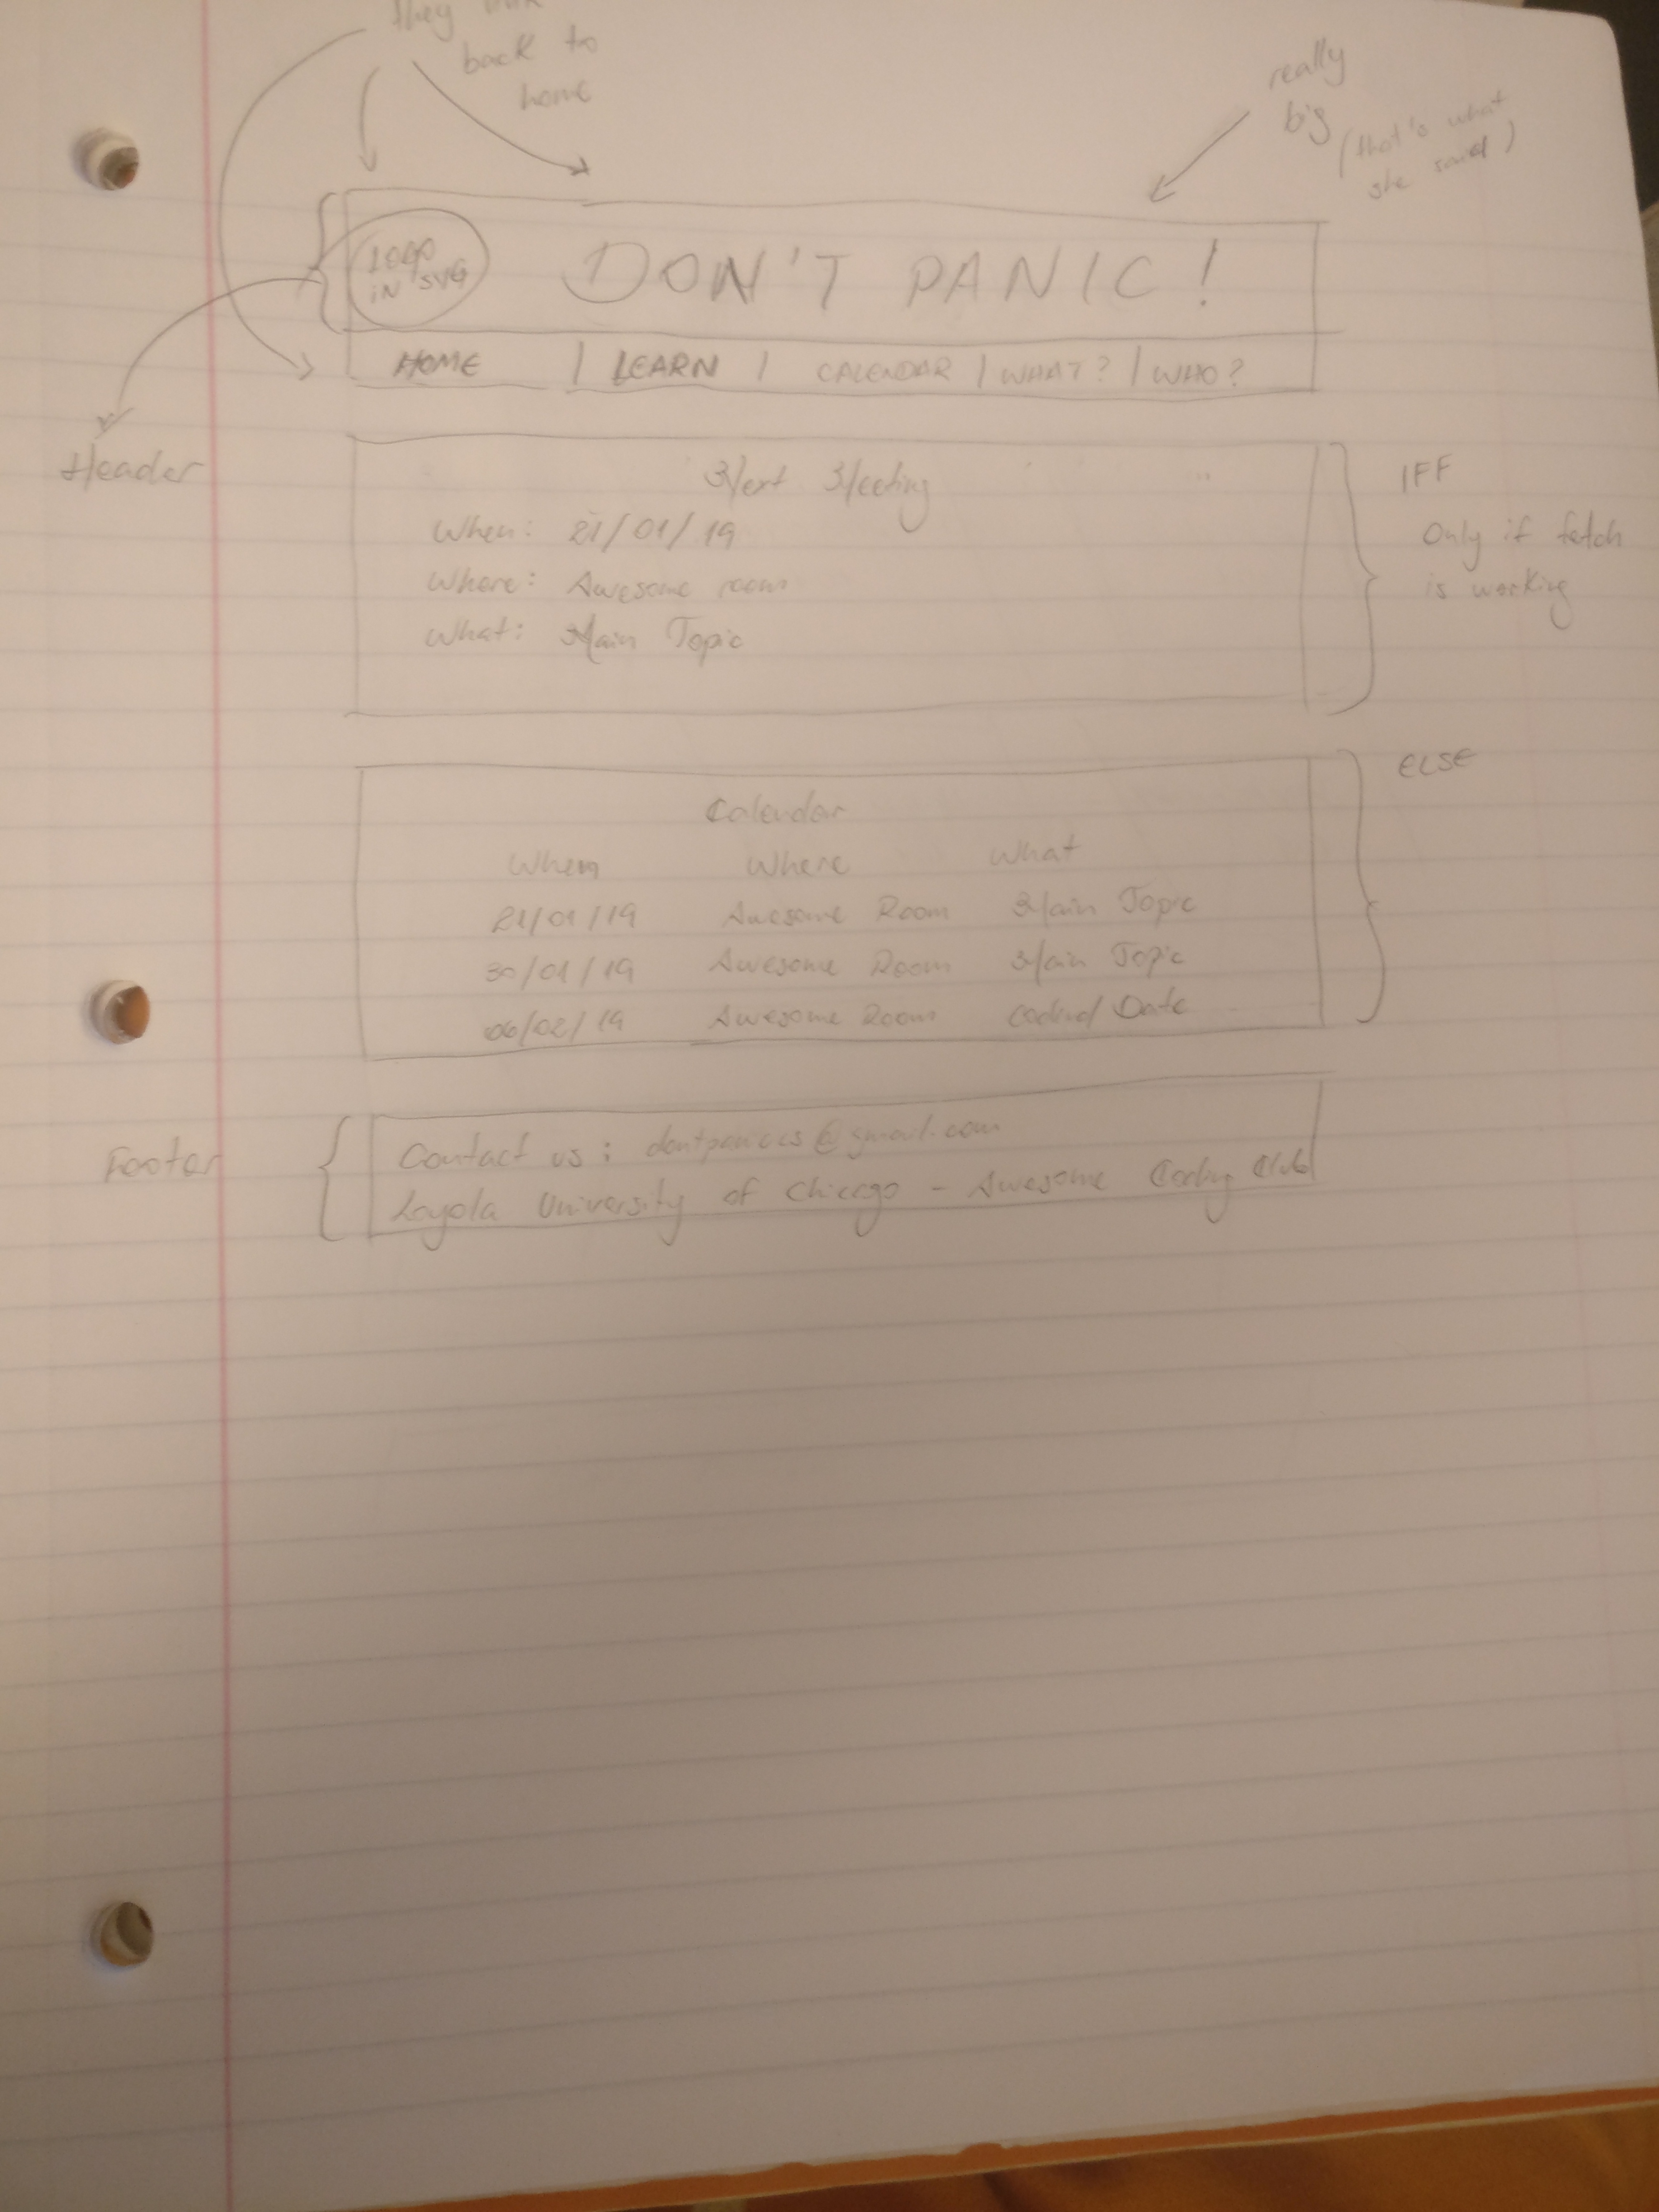 they link
back to
home
really
big
(that's what
she said)
LOGO
IN SVG
DON'T PANIC!
HOME | LEARN | CALENDAR | WHAT? | WHO?
Header
Next Meeting
When: 21/01/19
Where: Awesome room
What: Main Topic
IFF
Only if fetch
is working
ELSE
Calendar
When Where What
21/01/19 Awesome Room Main Topic
30/01/19 Awesome Room Main Topic
06/02/19 Awesome Room Date
Footer
Contact us: dontpaniccs@gmail.com
Loyola University of Chicago - Awesome Coding Club